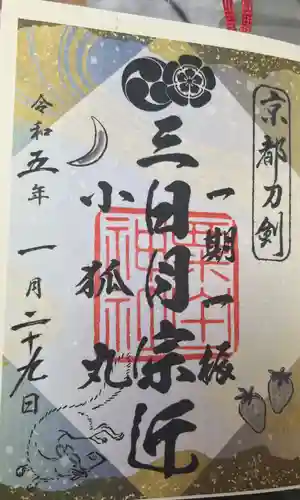 京都刀剣
一期一振
三日月宗近
小狐丸
令和五年一月二十九日
粟田
神社